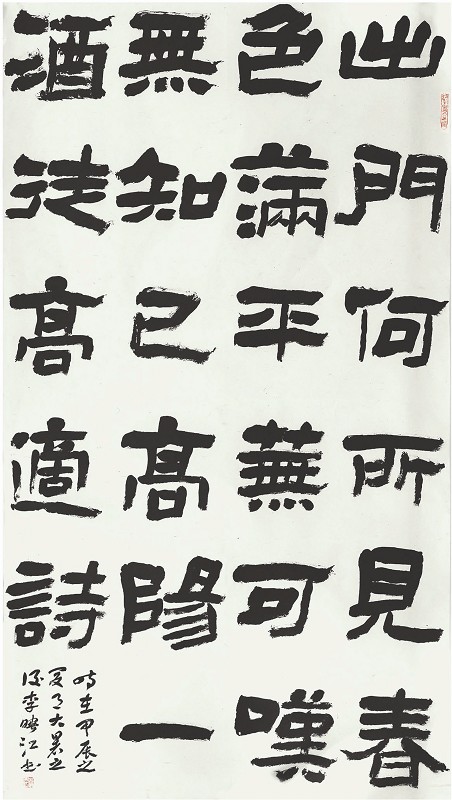 出門何所見春
色滿平蕪可嘆
無知已高陽一
酒徒高適詩
时在甲辰之
夏月大暑之
後李江书